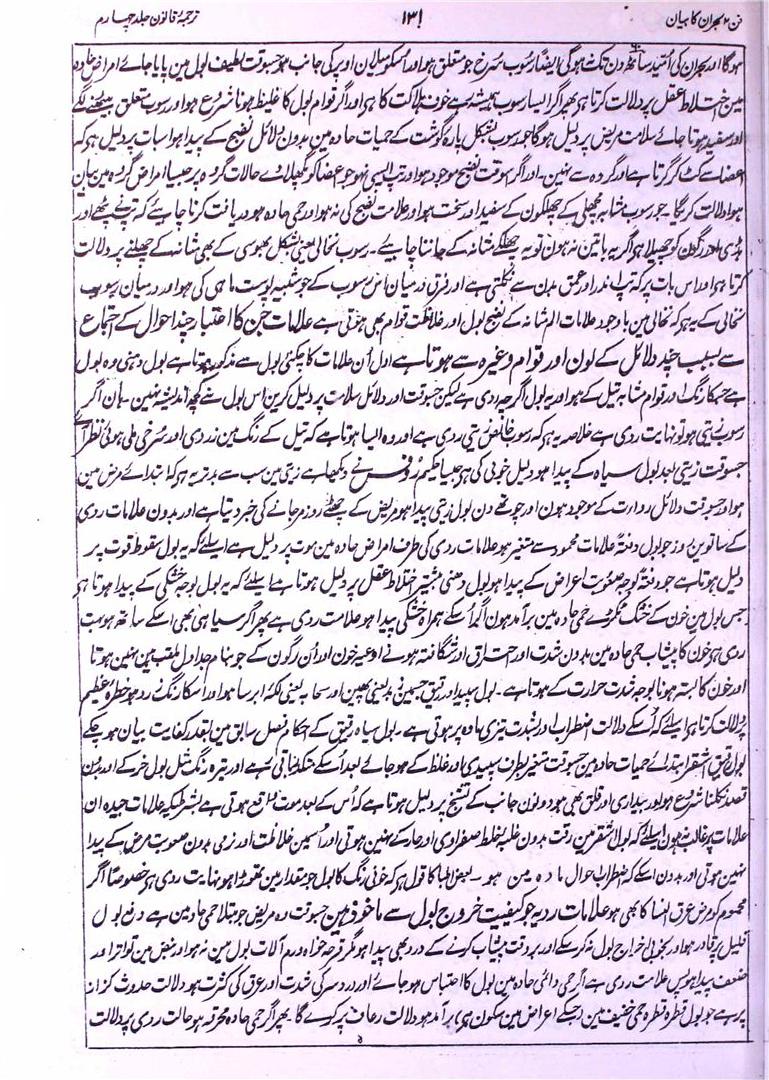 فن ۲ بحران کا بیان ۱۳۱ ترجمۂ قانون جلد چہارم
ہوگا اور بحران کی اُمید ساٹھ دن تک ہوگی ایضاً رسوب سُرخ جو متعلق ہو اور اُسکو میلان اوپر کی جانب ہو جسوقت لطیف بول مین پایا جائے امراض حادہ
مین اختلاط عقل پر دلالت کرتا ہی پھر اگر ایسا رسوب ہمیشہ رہے خوف ہلاکت کا ہی اور اگر قوام بول کا غلیظ ہونا شروع ہو اور رسوب متعلق بیٹھنے لگے
اور سفید ہوتا جائے سلامت مریض پر دلیل ہوگا جو رسوب بشکل پارہ گوشت کے حمیات حادہ مین بدون دلائل نضج کے پیدا ہو اسبات پر دلیل ہی کہ
اعضا سے کٹ کر گرتا ہے اور گردہ سے نہین ۔ اور اگر اسوقت نضج موجود ہو اور تپ ایسی نہو جو اعضا کو گھلا وے حالات گردہ پر جیسا امراض گردہ مین بیان
ہوا دلالت کریگا ۔ جو رسوب مشابہ مچھلی کے چھلکون کے سفید اور سخت ہو اور علامت نضج کی نہ ہو اور حمی حادہ ہو دریافت کرنا چاہیے کہ تپ نے پٹھے اور
ہڈی اور رگون کو چھیلا ہو اگر یہ باتین نہ ہون تو یہ چھلکے مثانہ کے جاننا چاہیے ۔ رسوب نخالی یعنی بشکل بھوسی کے بھی مثانہ کے چھلنے پر دلالت
کرتا ہی اور اس بات پر کہ تپ اندر اور عمق بدن سے نکلتی ہے اور فرق درمیان اس رسوب کے جو شبیہ پوست ماہی کی ہو اور درمیان رسوب
نخالی کے یہ ہی کہ نخالی مین باوجود علامات الم مثانہ کے نضج بول اور غلاظت قوام بھی ہوتی ہے علامات جن کا اعتبار چند احوال کے اجتماع
سے بسبب چند دلائل کے لون اور قوام وغیرہ سے ہوتا ہے اول اُن علامات کا چکنئی بول سے مذکور ہوتا ہے بول دہنی وہ بول
ہے جسکا رنگ اور قوام مشابہ تیل کے ہو اور یہ بول اگرچہ ردی ہے لیکن جسوقت اور دلائل سلامت پر دلیل کرین اس بول سے کچھ اندیشہ نہین ۔ ہان اگر
رسوب زیتی ہو تو نہایت ردی ہے خلاصہ یہ ہی کہ رسوب خالص زیتی ردی ہے اور وہ ایسا ہوتا ہے کہ تیل کے رنگ مین زردی اور سُرخی ملی ہوئی نظر آئے
جسوقت زیتی بعد بول سیاہ کے پیدا ہو دلیل خوبی کی ہی جیسا حکیم روفس نے دیکھا ہے زیتی مین سب سے بدتر یہ ہی کہ ابتدائے مرض مین
ہو اور جسوقت دلائل ردارت کے موجود ہون اور چوتھے دن بول زیتی پیدا ہو مریض کے چھٹے روز مر جانے کی خبر دیتا ہے اور بدون علامات ردی
کے ساتوین روز جو بول دفعۃً علامات محمود سے متغیر ہو علامات ردی کی طرف امراض حادہ مین موت پر دلیل ہے اسلیئے کہ یہ بول سقوط قوت پر
دلیل ہوتا ہے جو دفعۃً بوجہ صعوبت اعراض کے پیدا ہو بول دہنی بیشتر اختلاط عقل پر دلیل ہوتا ہے اسلیئے کہ یہ بول بوجہ خشکی کے پیدا ہوتا ہی
جس بول مین خون کے خشک ٹکڑے حمی حادہ مین برآمد ہون اگر اُسکے ہمراہ خشکی پیدا ہو علامت ردی ہے پھر اگر سیاہی بھی اسکے ساتھ ہو بہت
ردی ہی خون کا پیشاب حمی حادہ مین بدون شدت اور احتراق اور شگافتہ ہونے اوعیہ خون اور اُن رگون کے جو بنام جداول ملقب ہین نہین ہوتا
اور خون کا بستہ ہونا بوجہ شدت حرارت کے ہوتا ہے ۔ بول سپید اور رقیق جسمین زبد یعنی پھین اور سحابہ یعنی لکۂ ابر سا ہو اور اُسکا رنگ زرد ہو خطرہ عظیم
پر دلالت کرتا ہی اسلیئے کہ اُسکے دلالت اضطراب اور شدت تیزی مادہ پر ہوتی ہے ۔ بول سیاہ رقیق کے احکام فصل سابق مین بقدر کفایت بیان ہو چکے
بول رقیق اشقر ابتدائے حمیات حادہ مین جسوقت متغیر بطرف سپیدی اور غلظ کے ہو جائے بعد اُسکے گدلا باقی رہے اور تیرہ رنگ مثل بول خر کے اور بدون
قصد نکلنا شروع ہو اور بیداری اور قلق بھی ہو دونون جانب کے تشنج پر دلیل ہوتا ہے کہ اُس کے بعد موت واقع ہوتی ہے بشرطیکہ علامات جیدہ ان
علامات پر غالب نہون اسلیئے کہ بول اشقر مین رقت بدون غلبہ خلط صفراوی اور حار کے نہین ہوتی اور اُسمین غلاظت اور نرمی بدون صعوبت مرض کے پیدا
نہین ہوتی اور بدون اسکے کہ اضطراب احوال مادہ مین ہو ۔ بعض اطبا کا قول ہی کہ خونی رنگ کا بول جو مقدار مین تھوڑا ہو نہایت ردی ہی خصوصاً اگر
محموم کو مرض عرق النسا کا بھی ہو علامات ردیہ جو کیفیت خروج بول سے ماخوذ ہین جسوقت وہ مریض جو مبتلا حمی حادہ مین ہے دفع بول
قلیل پر قادر ہو اور بخوبی اخراج بول نہ کر سکے اور ہر وقت پیشاب کرنے کے درد بھی پیدا ہو مگر قرحہ خواہ ورم آلات بول مین نہ ہو اور نبض مین تواتر اور
ضعف پیدا ہو پس علامت ردی ہے اگر حمی دائمی حادہ مین بول کا احتباس ہو جائے اور درد سر کی شدت اور عرق کی کثرت ہو دلالت حدوث کزاز
پر ہے جو بول قطرہ قطرہ حمی خفیف مین (جسکے اعراض مین سکون ہو) برآمد ہو دلالت رعاف پر کریگا ۔ پھر اگر حمی حادہ محرقہ ہو حالت ردی پر دلالت